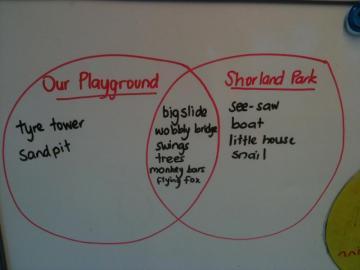 Our Playground
Shorland Park
tyre tower
sandpit
big slide
wobbly bridge
swings
trees
monkey bars
flying fox
see-saw
boat
little house
snail